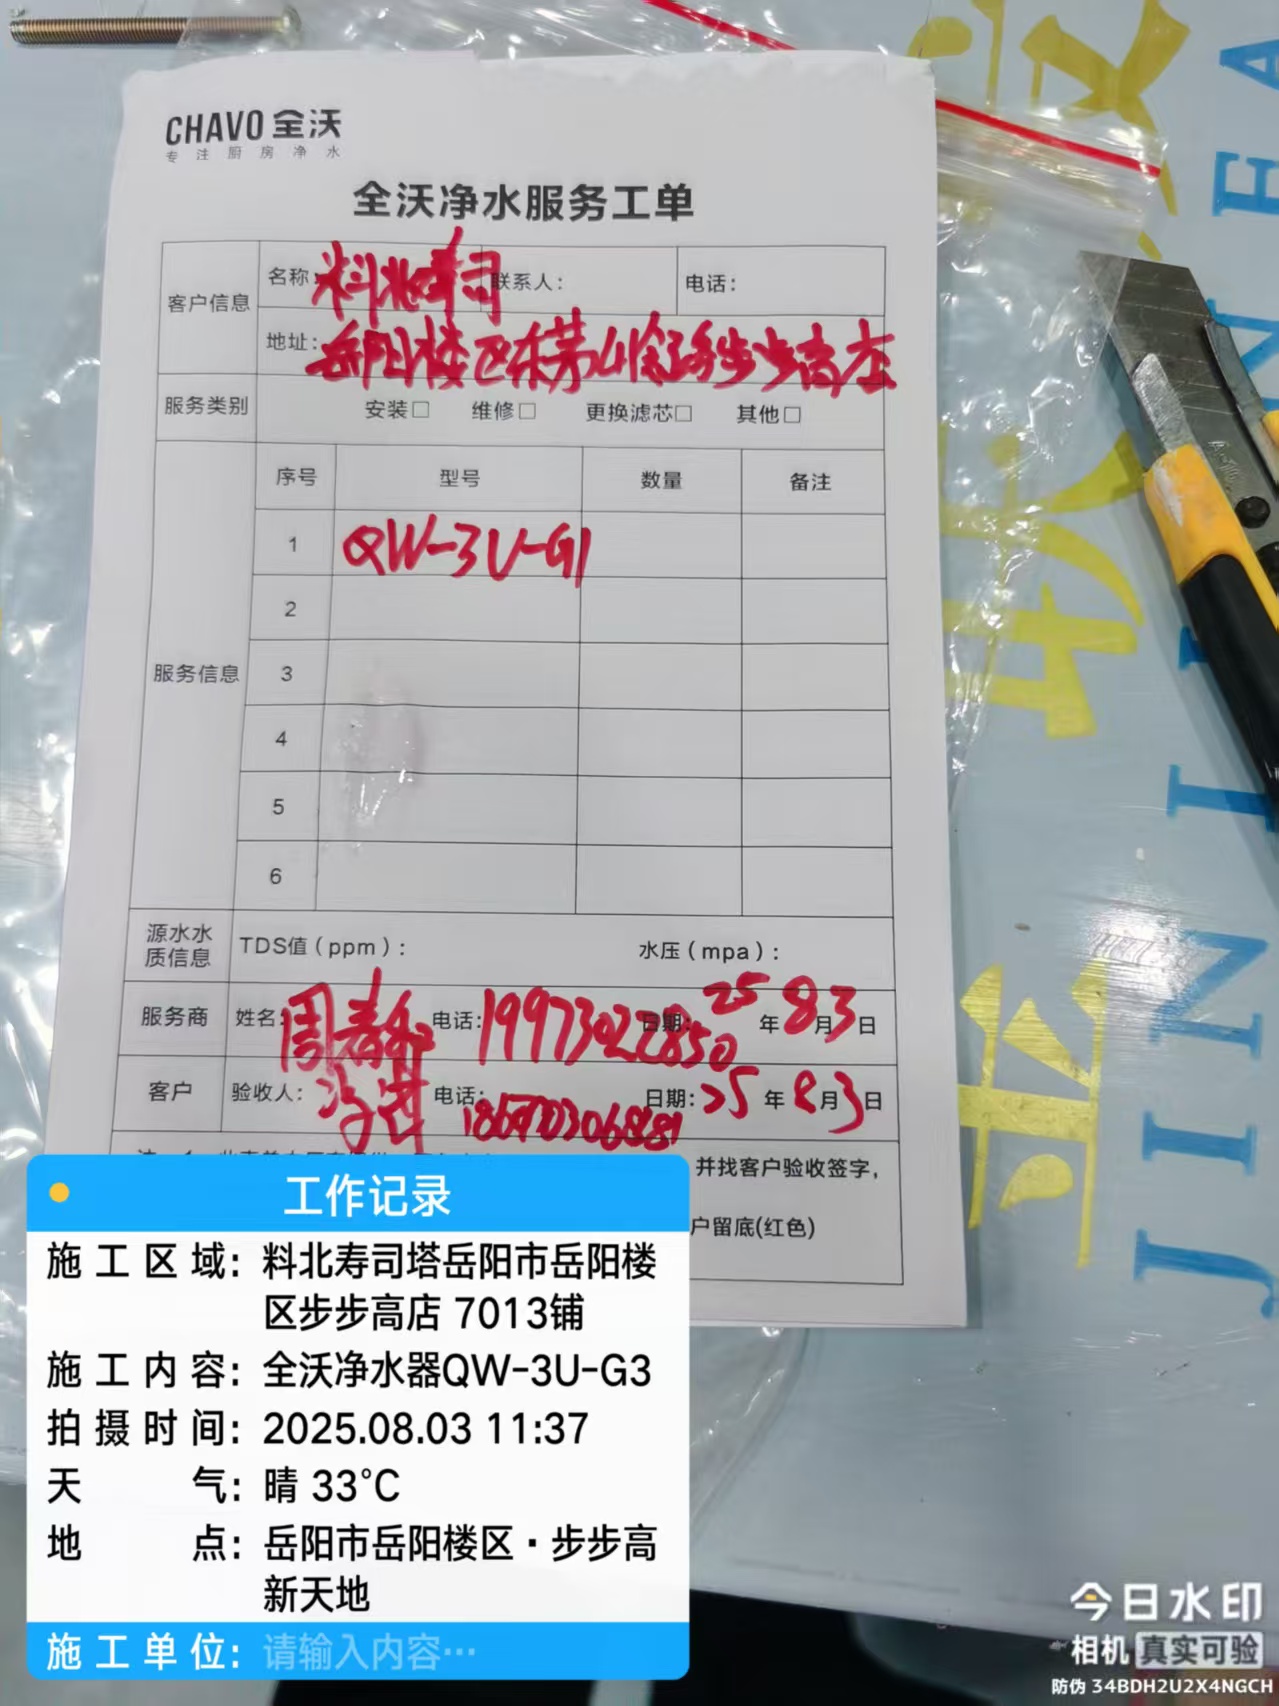 CHAVO 全沃
专注厨房净水
全沃净水服务工单
客户信息
名称: 料北寿司 联系人: 电话:
地址: 岳阳楼区东茅岭路步步高店
服务类别 安装□ 维修□ 更换滤芯□ 其他□
服务信息
序号 型号 数量 备注
1 QW-3U-G1
2
3
4
5
6
源水水质信息 TDS值(ppm): 水压(mpa):
服务商 姓名: 周春 电话: 19973022850 日期: 25年8月3日
客户 验收人: 电话: 日期: 25年8月3日
并找客户验收签字,
户留底(红色)
工作记录
施工区域: 料北寿司塔岳阳市岳阳楼
区步步高店 7013铺
施工内容: 全沃净水器QW-3U-G3
拍摄时间: 2025.08.03 11:37
天气: 晴 33°C
地点: 岳阳市岳阳楼区·步步高
新天地
施工单位: 请输入内容…
今日水印
相机 真实可验
防伪 34BDH2U2X4NGCH
JINJI